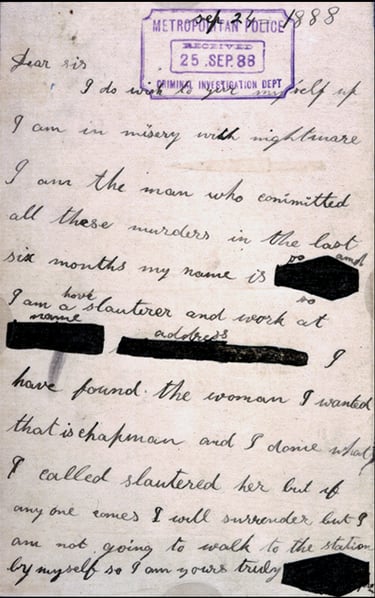 sep 24 1888
METROPOLITAN POLICE
RECEIVED
25.SEP.88
CRIMINAL INVESTIGATION DEPT
Dear sir
I do wish to give myself up
I am in misery with nightmare
I am the man who committed
all these murders in the last
six months my name is so and
so
I am a horse slauterer and work at
name address
I
have found the woman I wanted
that is chapman and I done what
I called slautered her but if
any one comes I will surrender but I
am not going to walk to the station
by myself so I am yours truly